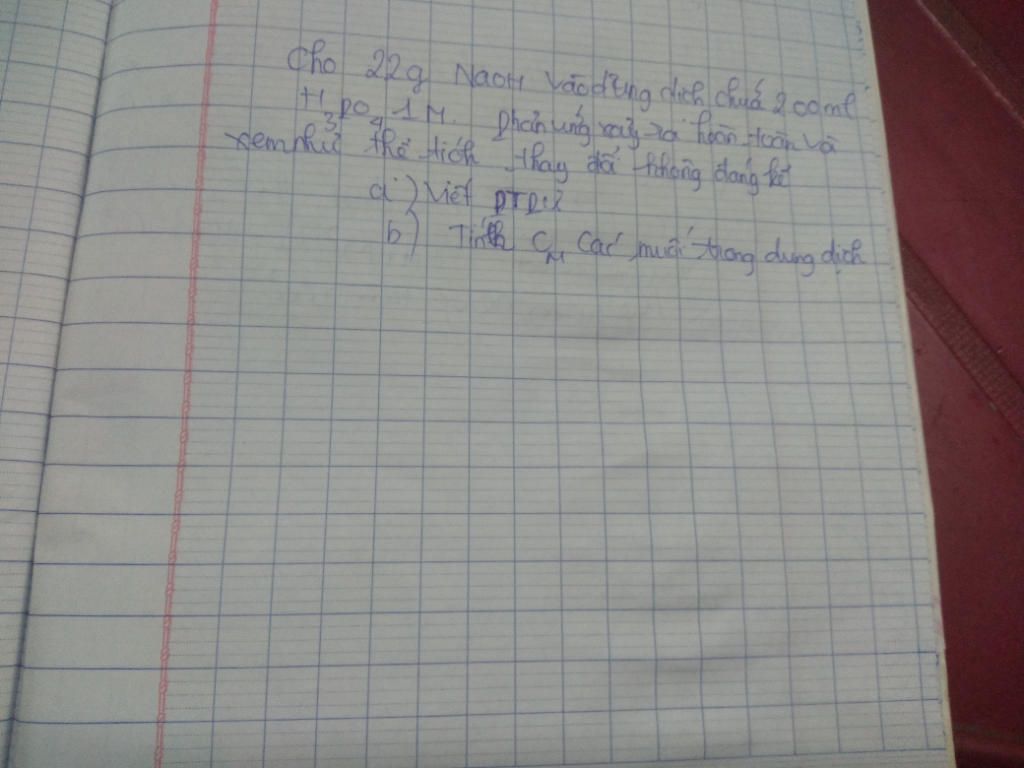 Cho 22g NaOH vào dung dịch chứa 200ml
H3PO4 1M. Phản ứng xảy ra hoàn toàn và
xem như thể tích thay đổi không đáng kể
a) Viết PTPƯ
b) Tính CM các muối trong dung dịch